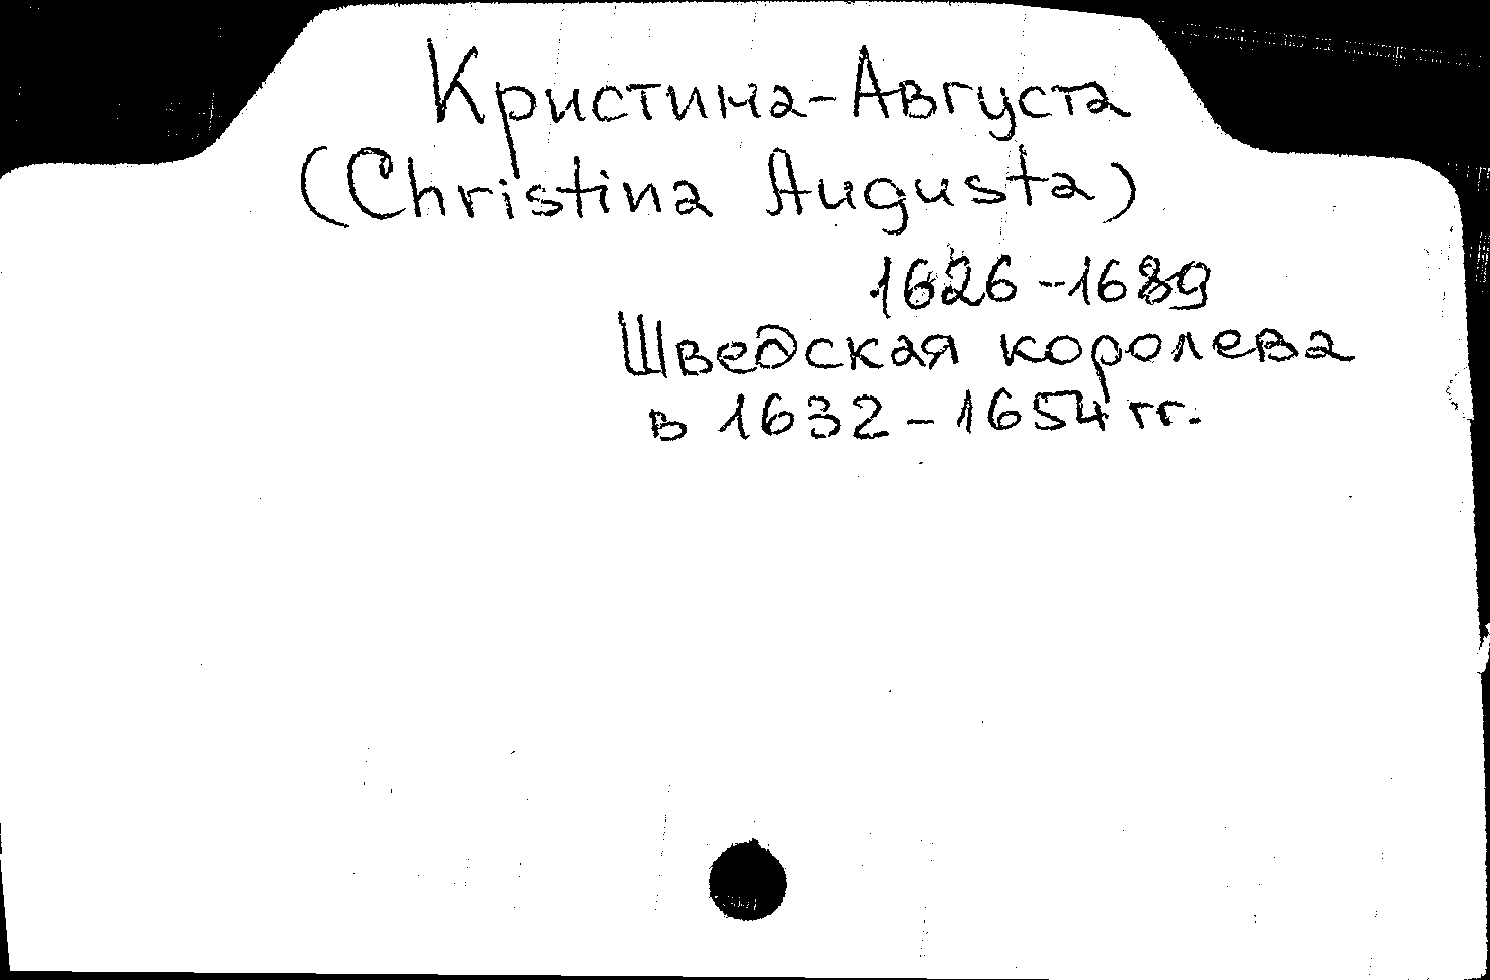 Кристина-Августа
(Christina Augusta)
1626-1689
Шведская королева
в 1632-1654 гг.